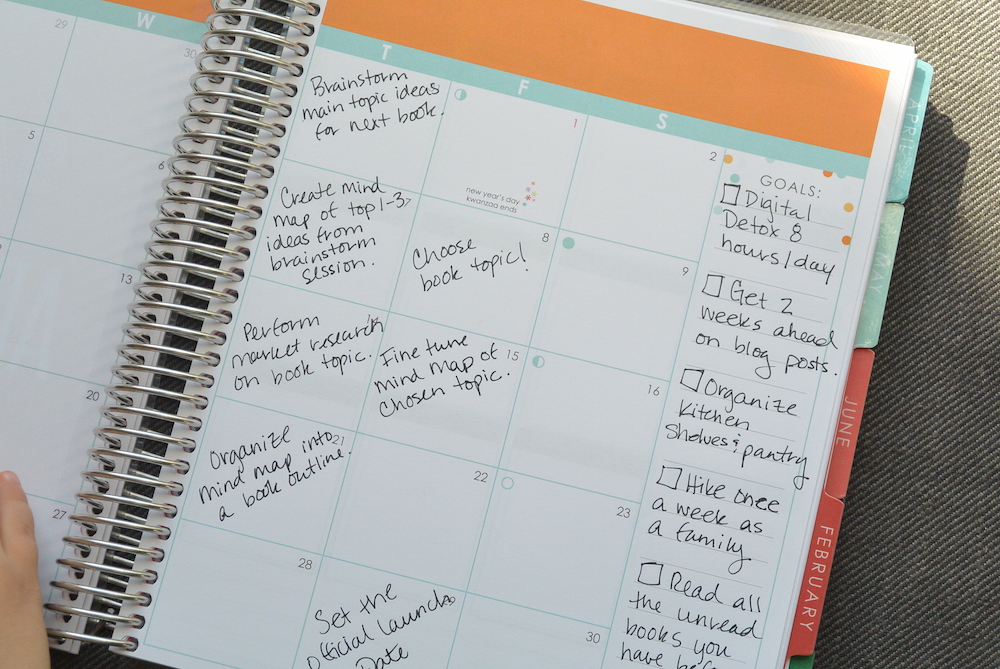 W
T
F
S
29
30
Brainstorm
main topic ideas
for next book.
1
new year's day
kwanzaa ends
2
5
6
Create mind
map of top 1-3
ideas from
brainstorm
session.
8
Choose
book topic!
9
13
Perform
market research
on book topic.
15
Fine tune
mind map of
chosen topic.
16
20
21
Organize
mind map into
a book outline.
22
23
27
28
Set the
official launch
Date
30
GOALS:
Digital
Detox 8
hours/day
Get 2
weeks ahead
on blog posts.
Organize
kitchen
shelves & pantry
Hike once
a week as
a family
Read all
the unread
books you
have
APRIL
MAY
JUNE
FEBRUARY